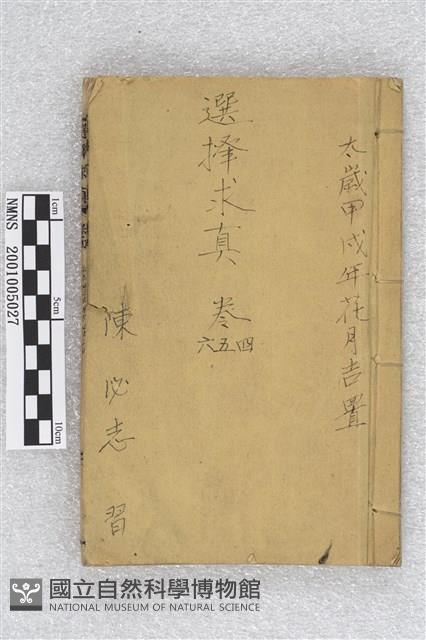 太歲甲戌年花月吉置
選擇求真 卷四五六
陳必志 習
NMNS 2001005027
1cm
5cm
10cm
國立自然科學博物館
NATIONAL MUSEUM OF NATURAL SCIENCE